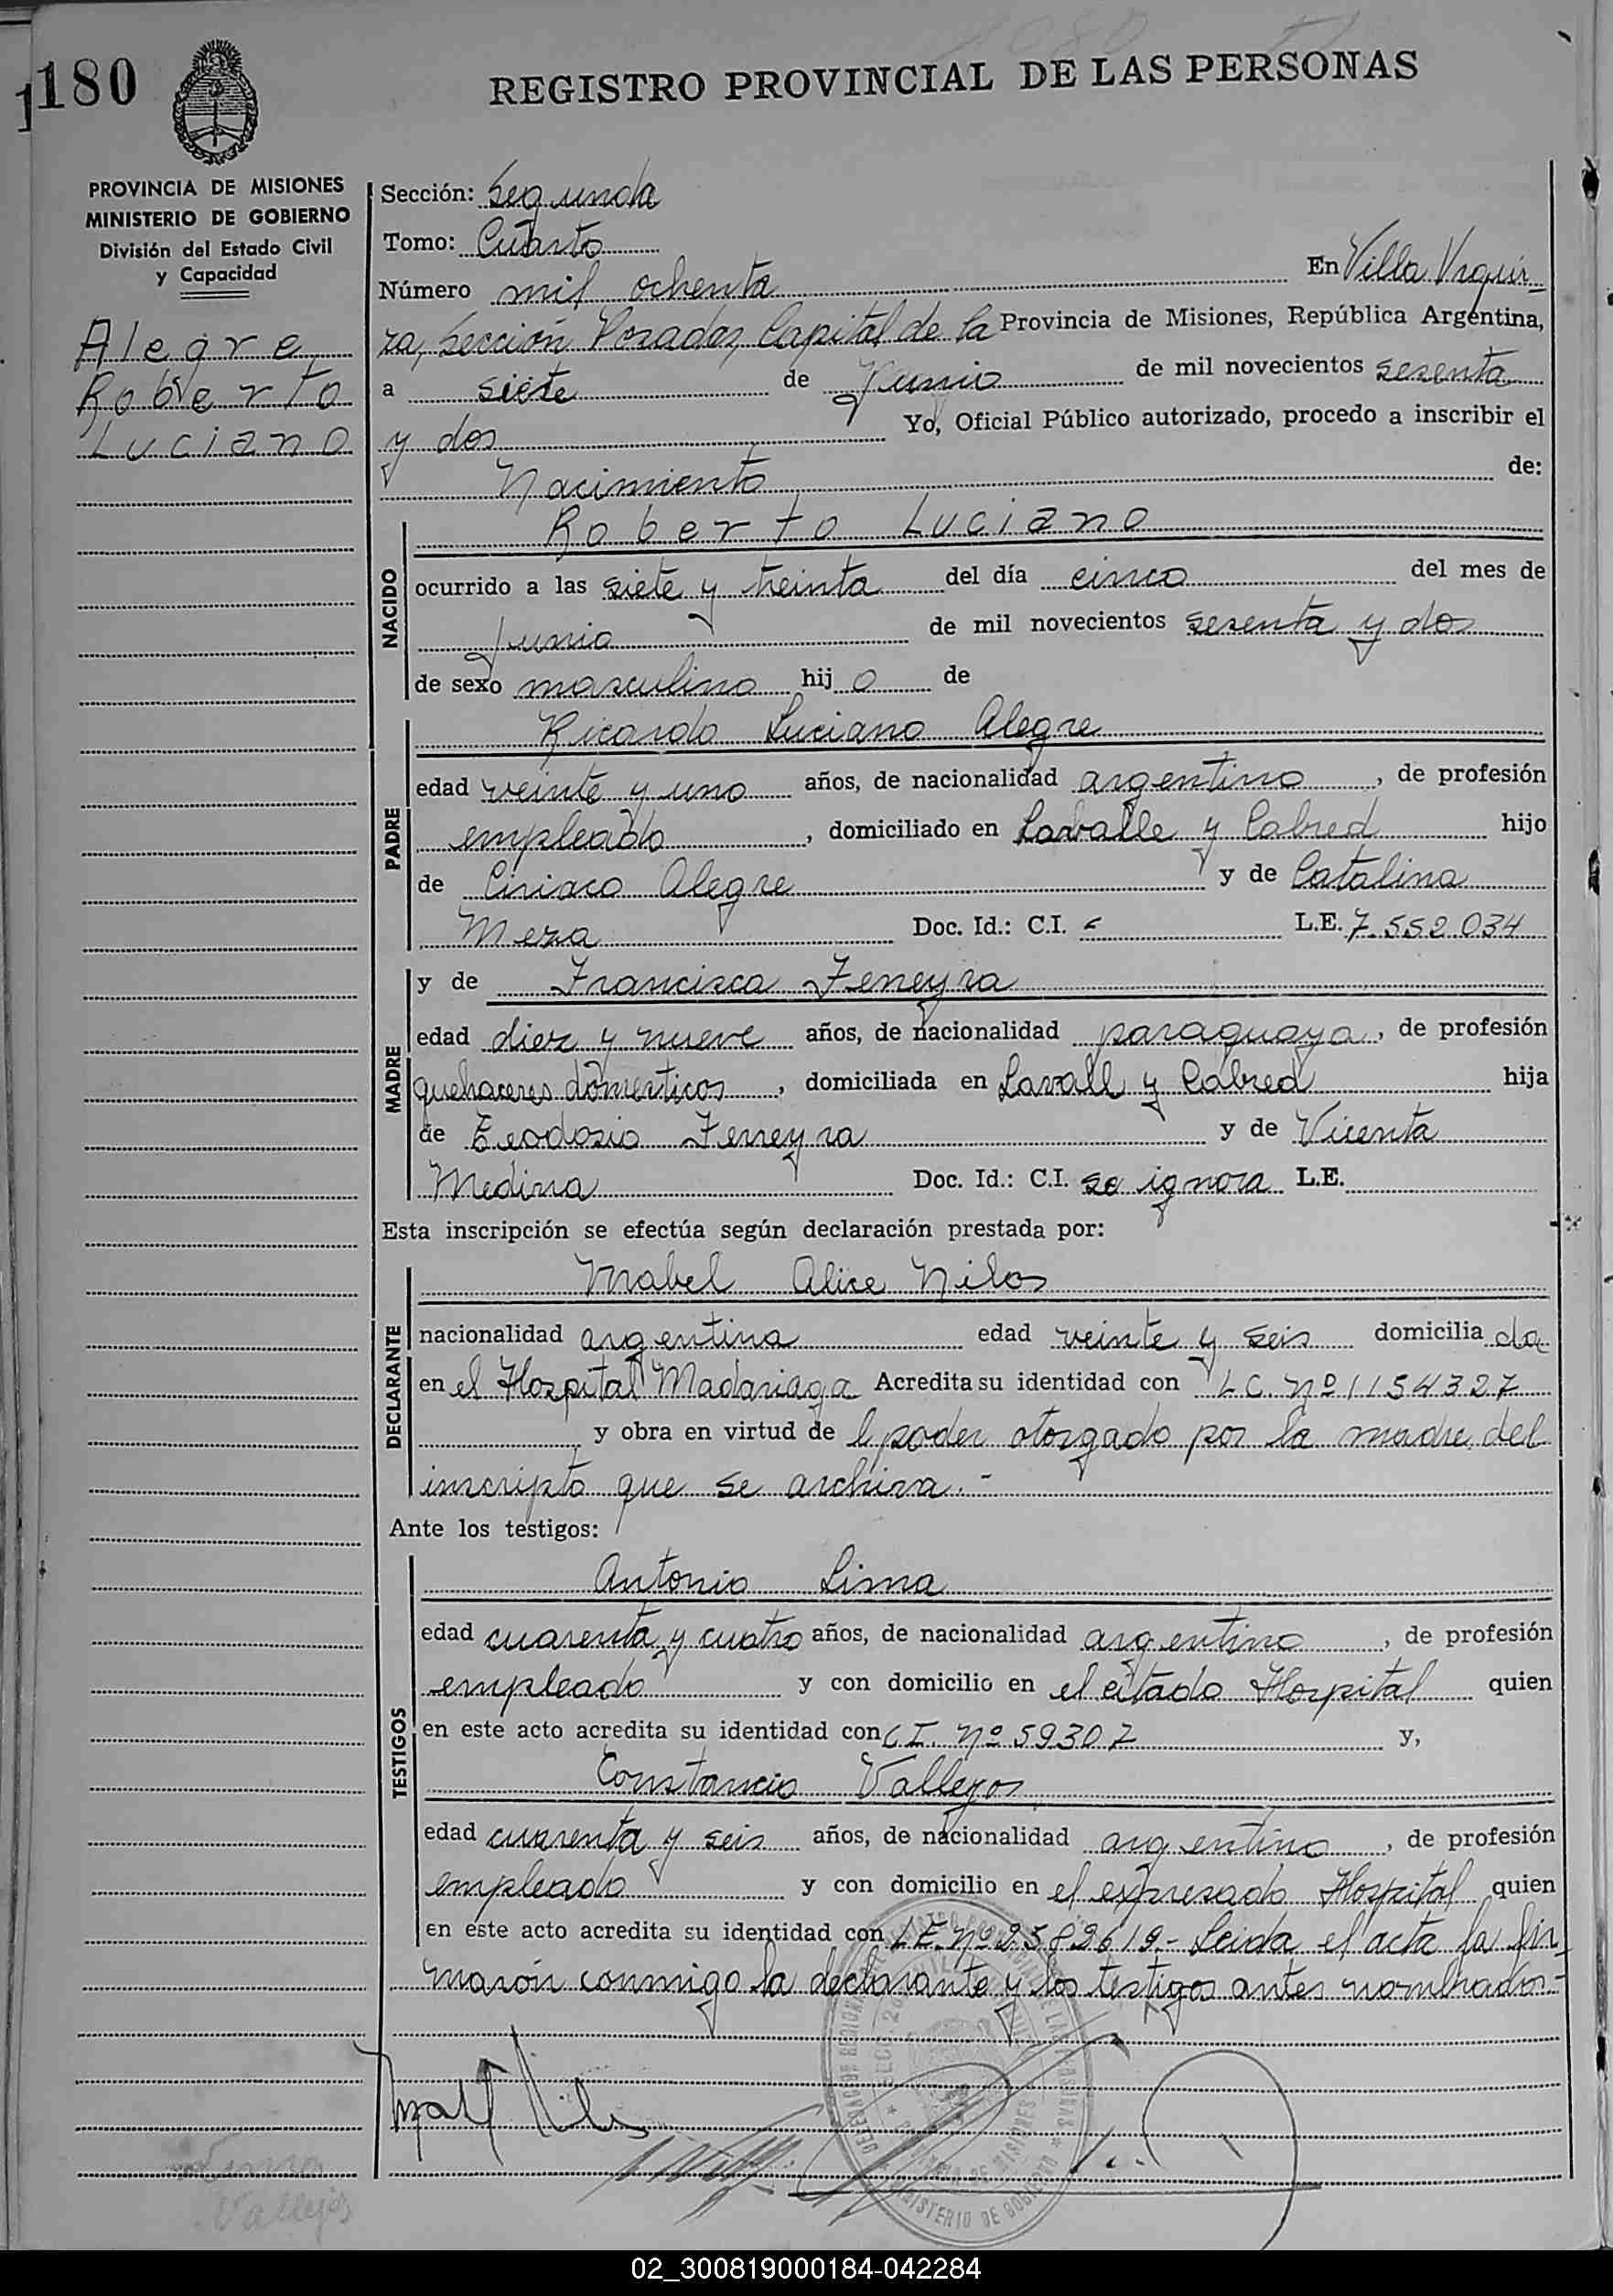 180
REGISTRO PROVINCIAL DE LAS PERSONAS
PROVINCIA DE MISIONES
MINISTERIO DE GOBIERNO
División del Estado Civil
y Capacidad
Alegre,
Roberto
Luciano
Sección: Segunda
Tomo: Cuarto
Número mil ochenta En Villa Urqui-
za, Sección Posadas, Capital de la Provincia de Misiones, República Argentina,
a siete de Junio de mil novecientos sesenta
y dos Yo, Oficial Público autorizado, procedo a inscribir el
Nacimiento de:
NACIDO
Roberto Luciano
ocurrido a las siete y treinta del día cinco del mes de
Junio de mil novecientos sesenta y dos
de sexo masculino hijo de
PADRE
Ricardo Luciano Alegre
edad veinte y uno años, de nacionalidad argentino, de profesión
empleado, domiciliado en Lavalle y Cabred hijo
de Ciriaco Alegre y de Catalina
Meza Doc. Id.: C.I. - L.E. 7.552.034
MADRE
y de Francisca Feneyra
edad diez y nueve años, de nacionalidad paraguaya, de profesión
quehaceres domésticos, domiciliada en Lavall y Cabred hija
de Teodosio Ferreyra y de Vicenta
Medina Doc. Id.: C.I. se ignora L.E.
Esta inscripción se efectúa según declaración prestada por:
DECLARANTE
Mabel Alice Nilos
nacionalidad argentina edad veinte y seis domiciliada
en el Hospital Madariaga Acredita su identidad con L.C. Nº 1154327
y obra en virtud del poder otorgado por la madre del
inscripto que se archiva.-
Ante los testigos:
TESTIGOS
Antonio Lima
edad cuarenta y cuatro años, de nacionalidad argentino, de profesión
empleado y con domicilio en el citado Hospital quien
en este acto acredita su identidad con C.I. Nº 59307 y,
Constancio Vallejos
edad cuarenta y seis años, de nacionalidad argentino, de profesión
empleado y con domicilio en el expresado Hospital quien
en este acto acredita su identidad con L.E. Nº 2582619.- Leida el acta la fir-
marón conmigo la declarante y los testigos antes nombrados.-
Lima
Vallejos
02_300819000184-042284